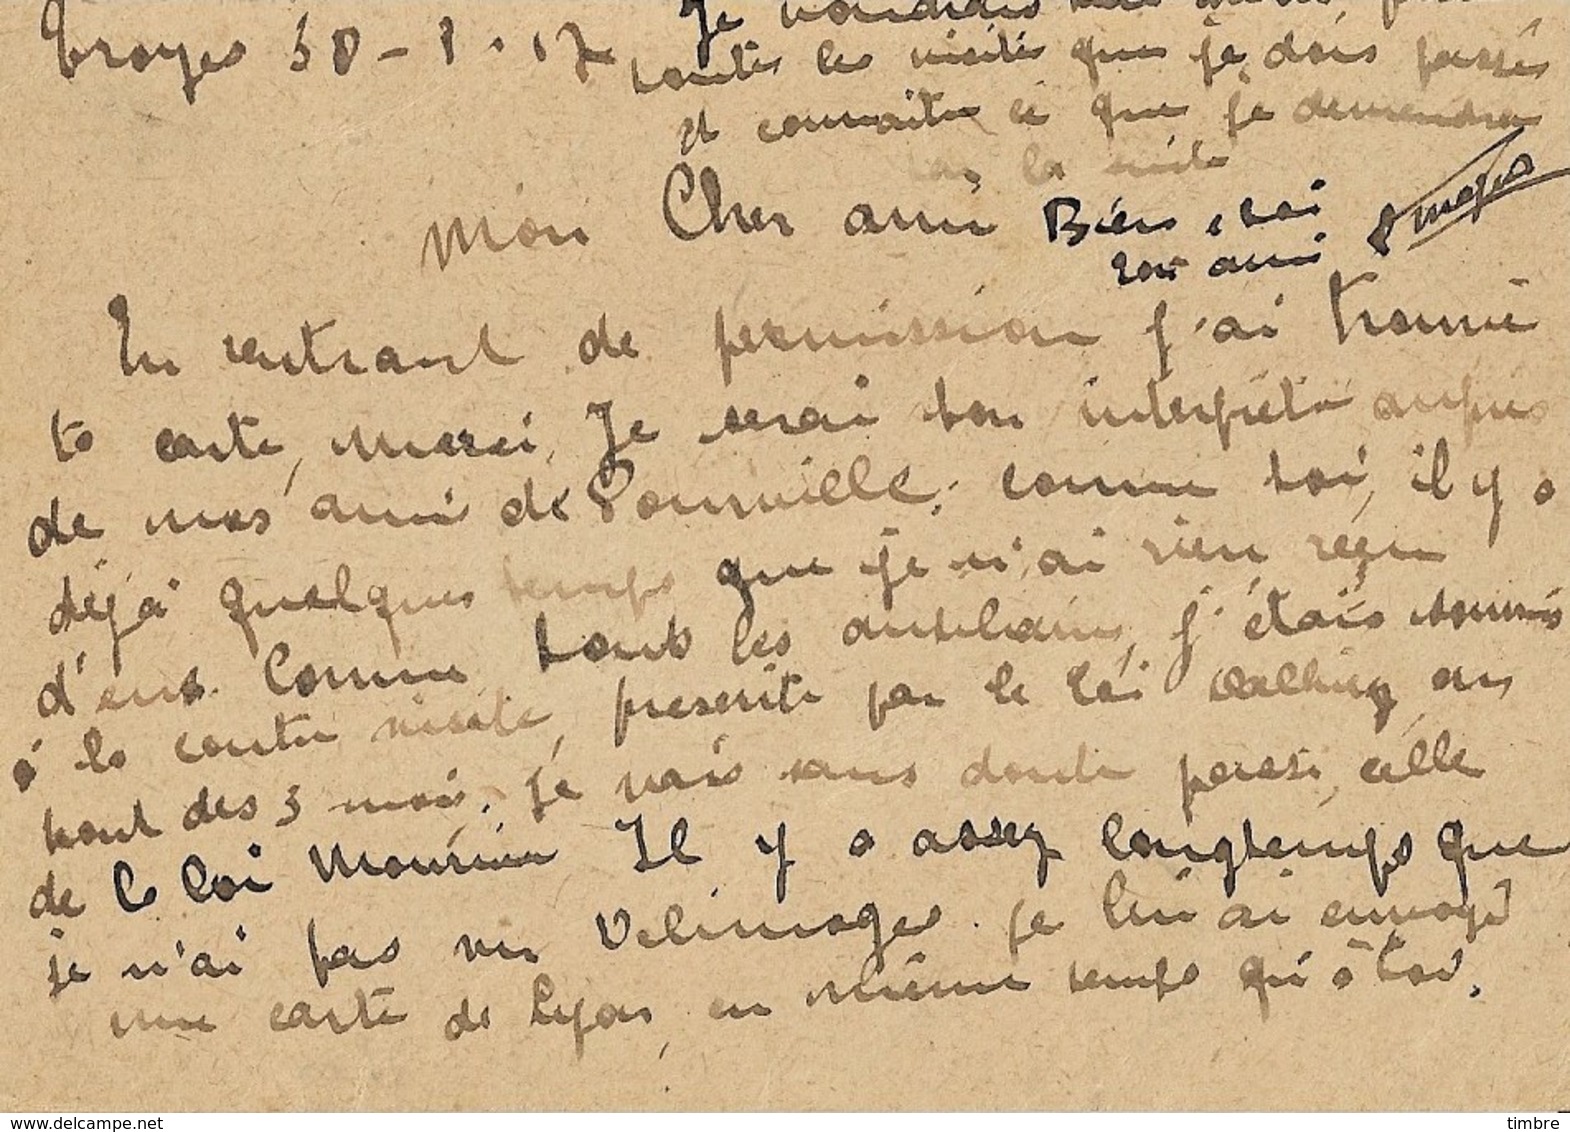 Troyes 30 - 8 - 17
Je voudrais
toutes les visites que je dois passés
et connaitre ce que je
la
Mon Cher ami
Bien à toi
ton ami
En rentrant de permission j'ai trouvé
ta carte, merci, Je serai ton interprète auprès
de mes ami de comme toi, il y a
déjà quelques temps que je n'ai rien reçu
d'eux. Comme tous les j'étais soumis
à la contre visite, prescrite par la loi Dalbiez, au
bout des 3 mois. Je vais sans doute passer, celle
de la loi Mourier Il y a assez longtemps que
je n'ai pas vu Delimoges. je lui ai envoyé
une carte de Lyon, en même temps qu'à toi.
delcampe.net
timbre